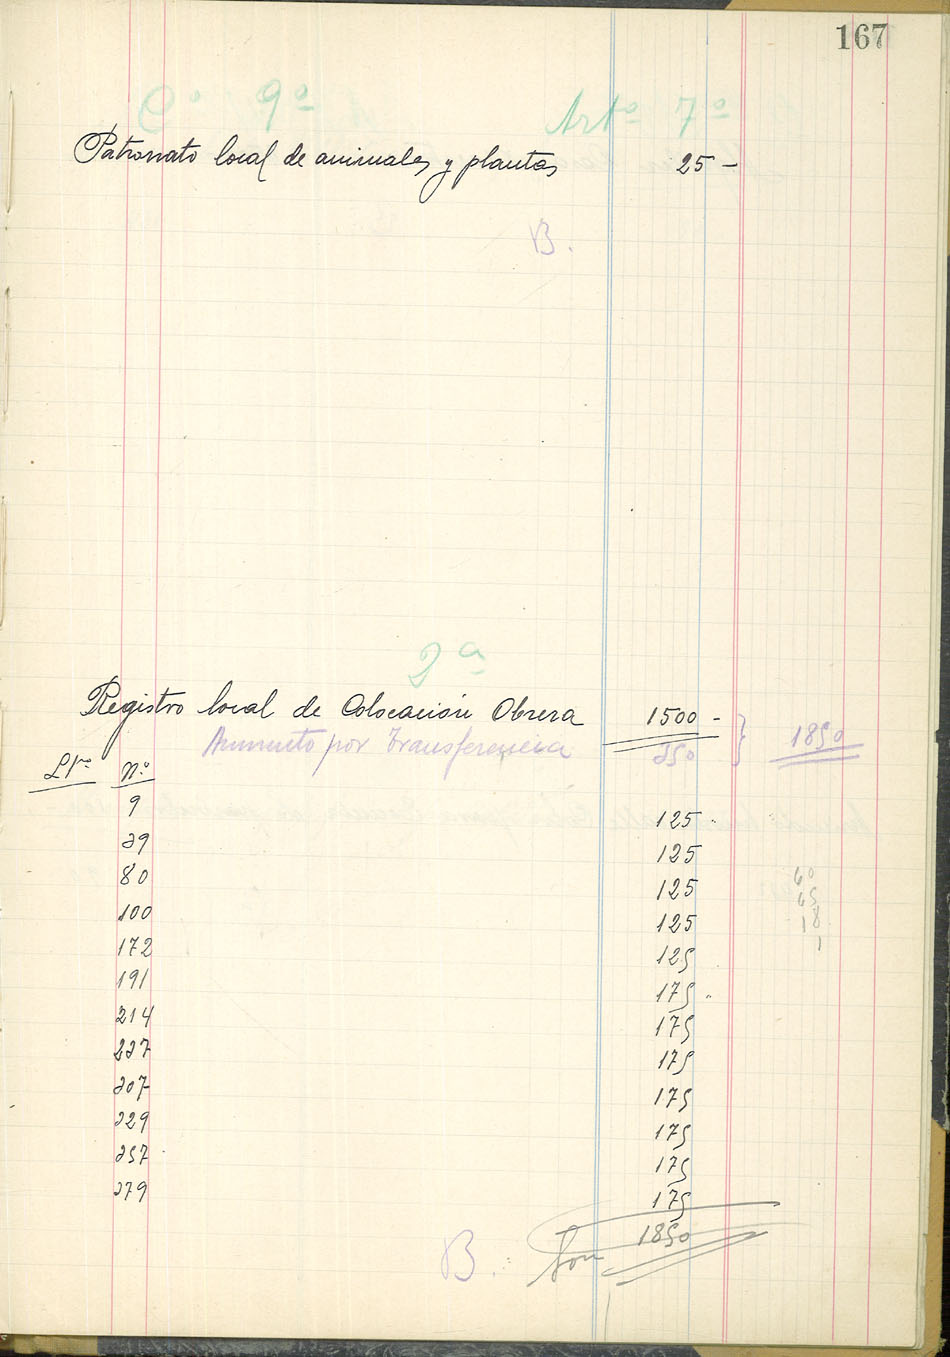 167
Cº 9º Artº 7º
Patronato local de animales y plantas 25 -
B.
2ª
Registro local de Colocación Obrera 1500 -
Aumento por transferencia 350 } 1850
Nº
9 125
29 125
80 125
100 125
172 125
191 175
214 175
227 175
307 175
329 175
357 175
379 175
B. Son 1850
60
65
18
1